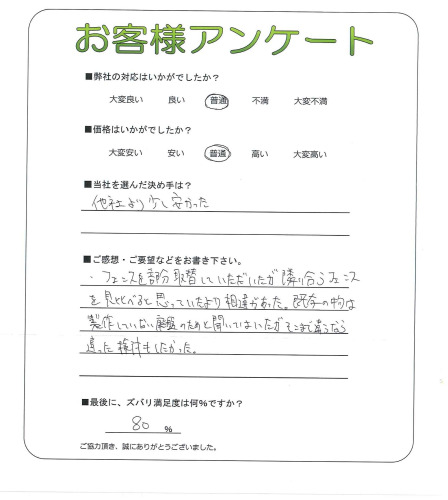 お客様アンケート
■弊社の対応はいかがでしたか?
大変良い 良い 普通 不満 大変不満
■価格はいかがでしたか?
大変安い 安い 普通 高い 大変高い
■当社を選んだ決め手は?
他社より少し安かった
■ご感想・ご要望などをお書き下さい。
・フェンスを部分取替していただいたが隣り合うフェンス
を見比べると思っていたより相違があった。既存の物は
製作していない廃盤のためと聞いてはいたがそこまで違うなら
違った検討もしたかった。
■最後に、ズバリ満足度は何%ですか?
80 %
ご協力頂き、誠にありがとうございました。